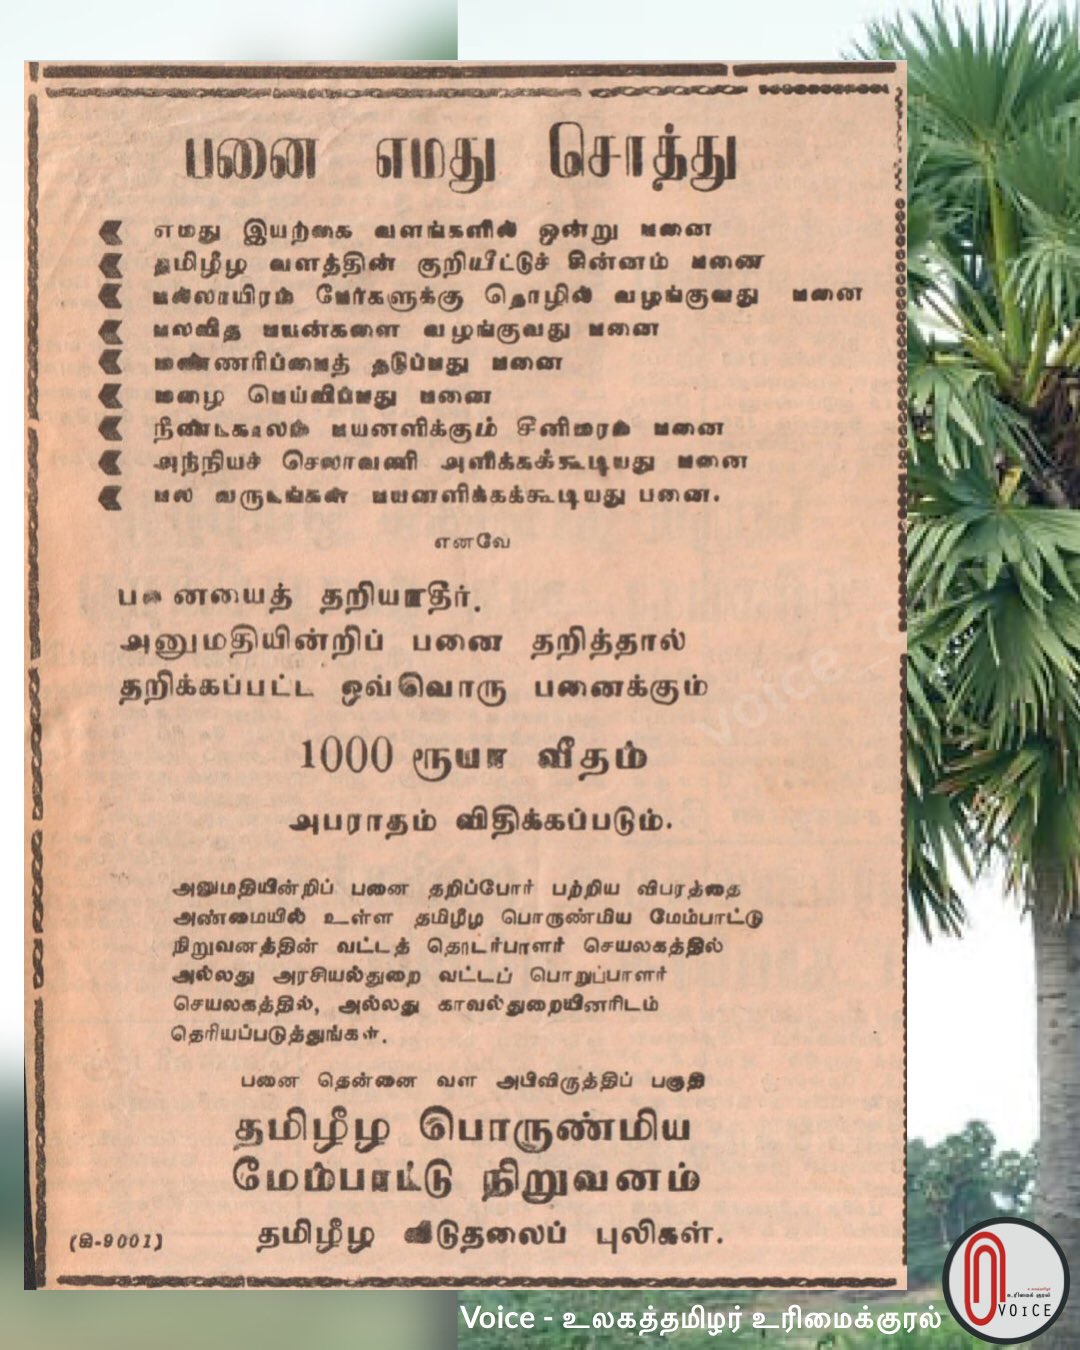 பனை எமது சொத்து
எமது இயற்கை வளங்களில் ஒன்று பனை
தமிழீழ வளத்தின் குறியீட்டுச் சின்னம் பனை
பல்லாயிரம் பேர்களுக்கு தொழில் வழங்குவது பனை
பலவித பயன்களை வழங்குவது பனை
மண்ணரிப்பைத் தடுப்பது பனை
மழை பெய்விப்பது பனை
நீண்டகாலம் பயனளிக்கும் சீனிமரம் பனை
அந்நியச் செலாவணி அளிக்கக்கூடியது பனை
பல வருடங்கள் பயனளிக்கக்கூடியது பனை.
எனவே
பனையைத் தறியாதீர்.
அனுமதியின்றிப் பனை தறித்தால்
தறிக்கப்பட்ட ஒவ்வொரு பனைக்கும்
1000 ரூபா வீதம்
அபராதம் விதிக்கப்படும்.
அனுமதியின்றிப் பனை தறிப்போர் பற்றிய விபரத்தை
அண்மையில் உள்ள தமிழீழ பொருண்மிய மேம்பாட்டு
நிறுவனத்தின் வட்டத் தொடர்பாளர் செயலகத்தில்
அல்லது அரசியல்துறை வட்டப் பொறுப்பாளர்
செயலகத்தில், அல்லது காவல்துறையினரிடம்
தெரியப்படுத்துங்கள்.
பனை தென்னை வள அபிவிருத்திப் பகுதி
தமிழீழ பொருண்மிய
மேம்பாட்டு நிறுவனம்
தமிழீழ விடுதலைப் புலிகள்.
(இ-9001)
உரிமைக் குரல்
VOiCE
Voice - உலகத்தமிழர் உரிமைக்குரல்